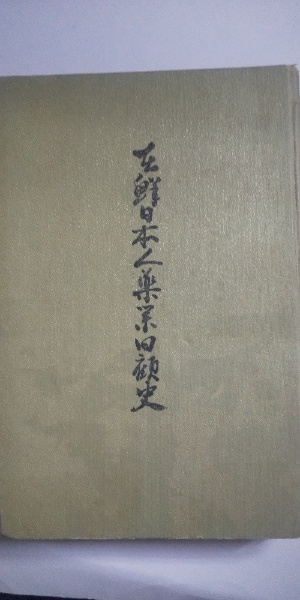 在鮮日本人薬業回顧史